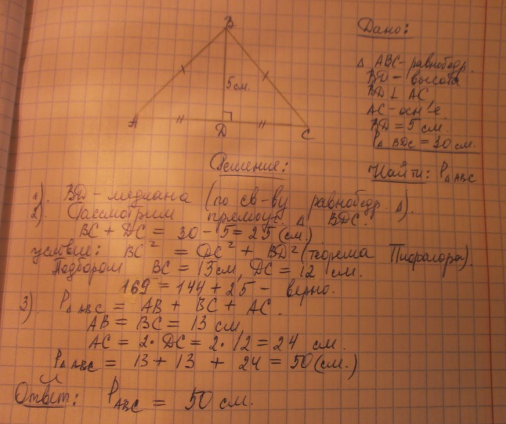 Дано:
B
Δ ABC - равнобедр.
BD - высота
BD ⊥ AC
5 см.
AC - осн-е
BD = 5 см.
P Δ BDC = 30 см.
A
D
C
Найти: P Δ ABC
Решение:
1). BD - медиана (по св-ву равнобедр. Δ).
2). Рассмотрим прямоуг. Δ BDC:
BC + DC = 30 - 5 = 25 (см.)
условие: BC² = DC² + BD² (теорема Пифагора).
Подбором BC = 13 см, DC = 12 см.
169 = 144 + 25 - верно.
3). P Δ ABC = AB + BC + AC.
AB = BC = 13 см,
AC = 2 · DC = 2 · 12 = 24 см.
P Δ ABC = 13 + 13 + 24 = 50 (см.)
Ответ: P ABC = 50 см.